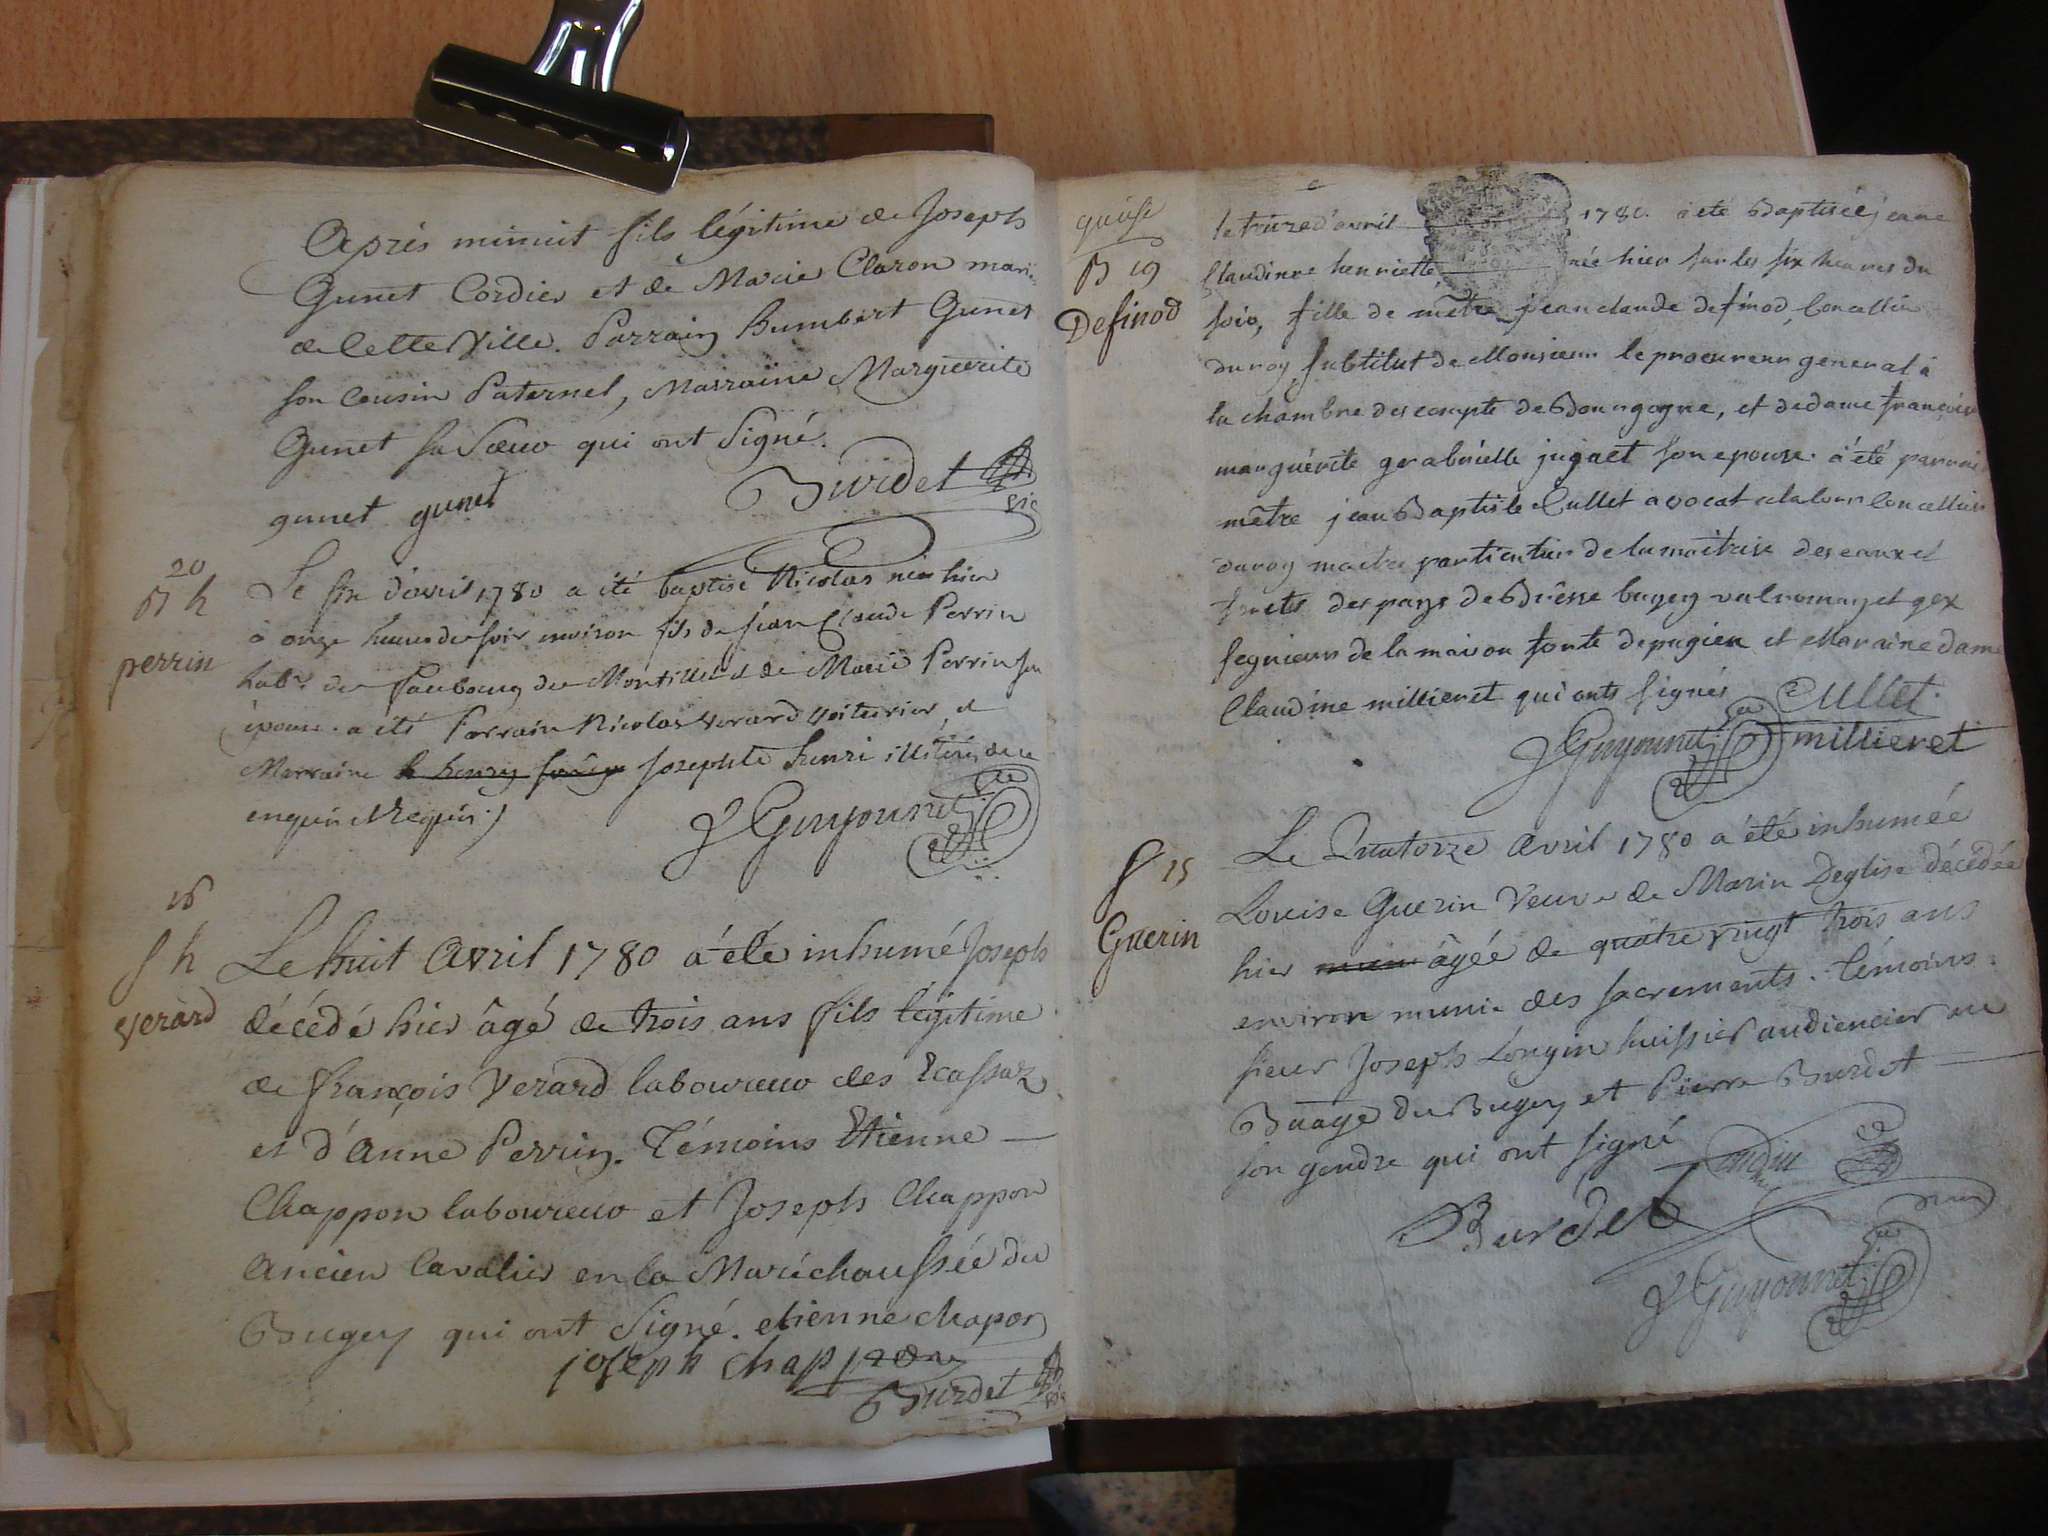 Après minuit fils légitime de Joseph
Gunet Cordier et de Marie Claron mari
de Cette Ville. Parrain humbert Gunet
son Cousin Paternel, Marraine Marguerite
Gunet sa Sœur qui ont Signé.
gunet gunet Burdet
20
B h
perrin
Le six d'avril 1780 a été baptisé Nicolas né hier
à onze heures du soir environ fils de Jean Claude Perrin
habt. du Faubourg de Montillet et de Marie Perrin sa
épouse. a été Parrain Nicolas Verard voiturier, et
Marraine Josephte henri illiterés de ce
enquis et requis.
J Guyounet
16
S h
verard
Le huit Avril 1780 a été inhumé Joseph
décédé hier âgé de trois ans fils légitime
de françois Verard laboureur des Ecassaz
et d'Anne Perrin. Témoins Etienne
Chappon laboureur et Joseph Chappon
Ancien Cavalier en la Maréchaussée du
Bugey qui ont Signé. etienne chapon
joseph chappon
Burdet
B 19
Definod
le treize d'avril 1780. a été Baptisée jeanne
Claudinne henriette née hier sur les six heures du
soir, fille de mêtre jean claude definod, Concellier
du roy substitut de Monsieur le procureur general à
la chambre des compte de Bourgogne, et de dame françoise
marguérite gerabrielle jugaet son epouse. a été parrain
mêtre jean Baptiste Cullet avocat a la cour Concellier
du roy maitre particulier de la maitrise des eaux et
forets des pays de Brêsse bugey valromay et gex
segnieur de la maison forte de pugieu et Maraine dame
Claudine millieret qui onts signés
Cullet.
J Guyounet millieret
S 15
Guerin
Le Quatorze Avril 1780 a été inhumée
Louise Guerin Veuve de Marin Deglise décédée
hier âgée de quatre vingt trois ans
environ munie des sacrements. Témoins
sieur Joseph Longin huissier audiencier au
Buage du Bugey et Pierre Burdet
son gendre qui ont signé
Burdet
J Guyounet